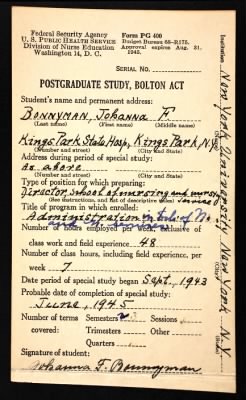 Federal Security Agency
U. S. PUBLIC HEALTH SERVICE
Division of Nurse Education
Washington 14, D. C.
Form PG 400
Budget Bureau 68-R175.
Approval expires Aug. 31,
1945.
SERIAL NO.
POSTGRADUATE STUDY, BOLTON ACT
Student's name and permanent address:
Bonnyman, Johanna F.
(Last name) (First name) (Middle name)
Kings Park State Hosp., Kings Park, N.Y.
(Number and street) (City and State)
Address during period of special study:
As above
(Number and street) (City and State)
Type of position for which preparing:
Director School of nursing and nursing service
(See instructions, and list of descriptive titles)
Title of program in which enrolled:
Administration in Schools of Nursing
Number of hours employed per week, exclusive of
class work and field experience 48
Number of class hours, including field experience, per
week 7
Date period of special study began Sept., 1943
Probable date of completion of special study:
June, 1945
Number of terms Semesters 3 Sessions
covered: Trimesters Other
Quarters
Signature of student:
Johanna F. Bonnyman
Institution New York University New York, N.Y.
(City and State)